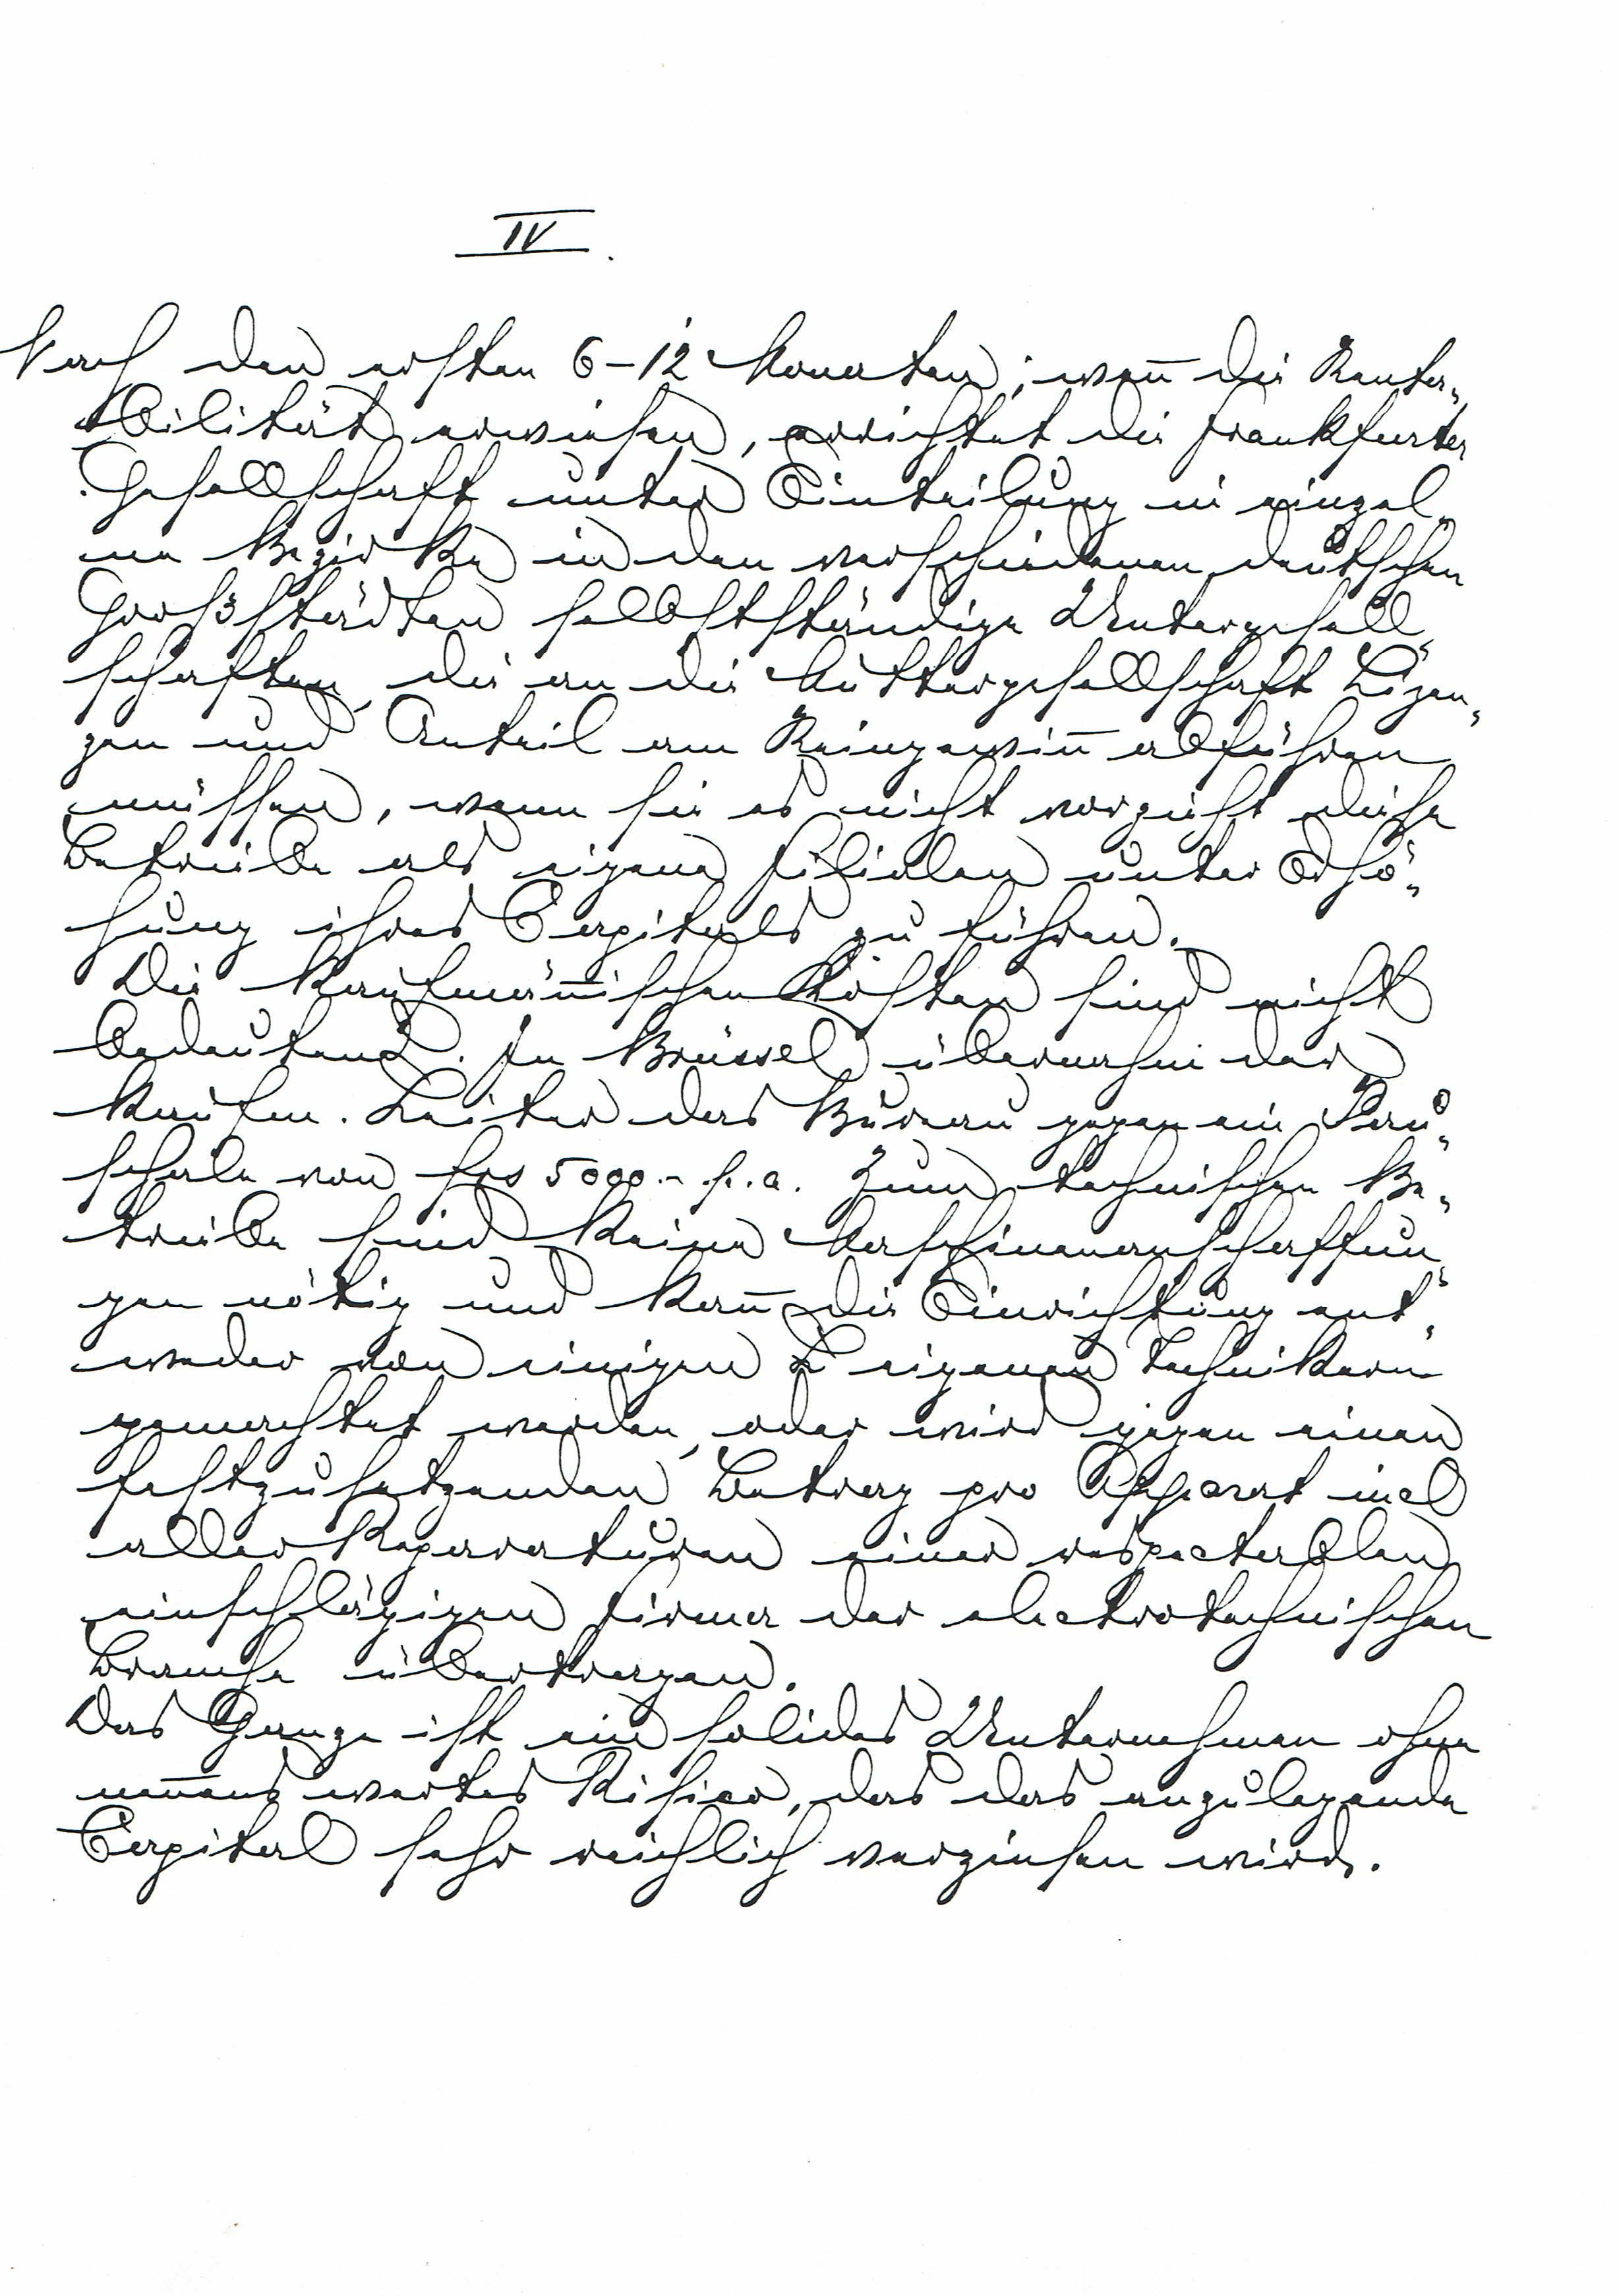 IV.
Nach den ersten 6-12 Monaten, wen̄ die Renta„
bilität erwiesen, errichtet die Frankfurter
Gesellschaft unter Einteilung in einzel„
ne Bezirke in den verschiedenen deutschen
Großstädten selbstständige Untergesell„
schaften, die an die Muttergesellschaft Lizen„
zen und Anteil am Reingewin̄ abführen
müssen, wenn sie es nicht vorzieht diese
Betriebe als eigene Filialen unter Erhö„
hung ihres Capitals zu führen.
Die kaufmän̄ischen Kosten sind nicht
bedeutend. In Brüssel übernahm der
kaufm. Leiter das Bureau gegen ein Pau„
schale von frs 5000.- p.a. Zum technischen Be„
triebe sind keine Maschinenanschaffun„
gen nötig und kan̄ die Einrichtung ent„
weder von einigen eigenen Technikern
gemacht werden, oder wird gegen einen
festzusetzenden Betrag pro Apparat incl
aller Reparaturen einer respectablen
einschlägigen Firma der electrotechnischen
Branche übertragen.
Das Ganze ist ein solides Unternehmen ohne
nen̄enswertes Risico, das das anzulegende
Capital sehr reichlich verzinsen wird.